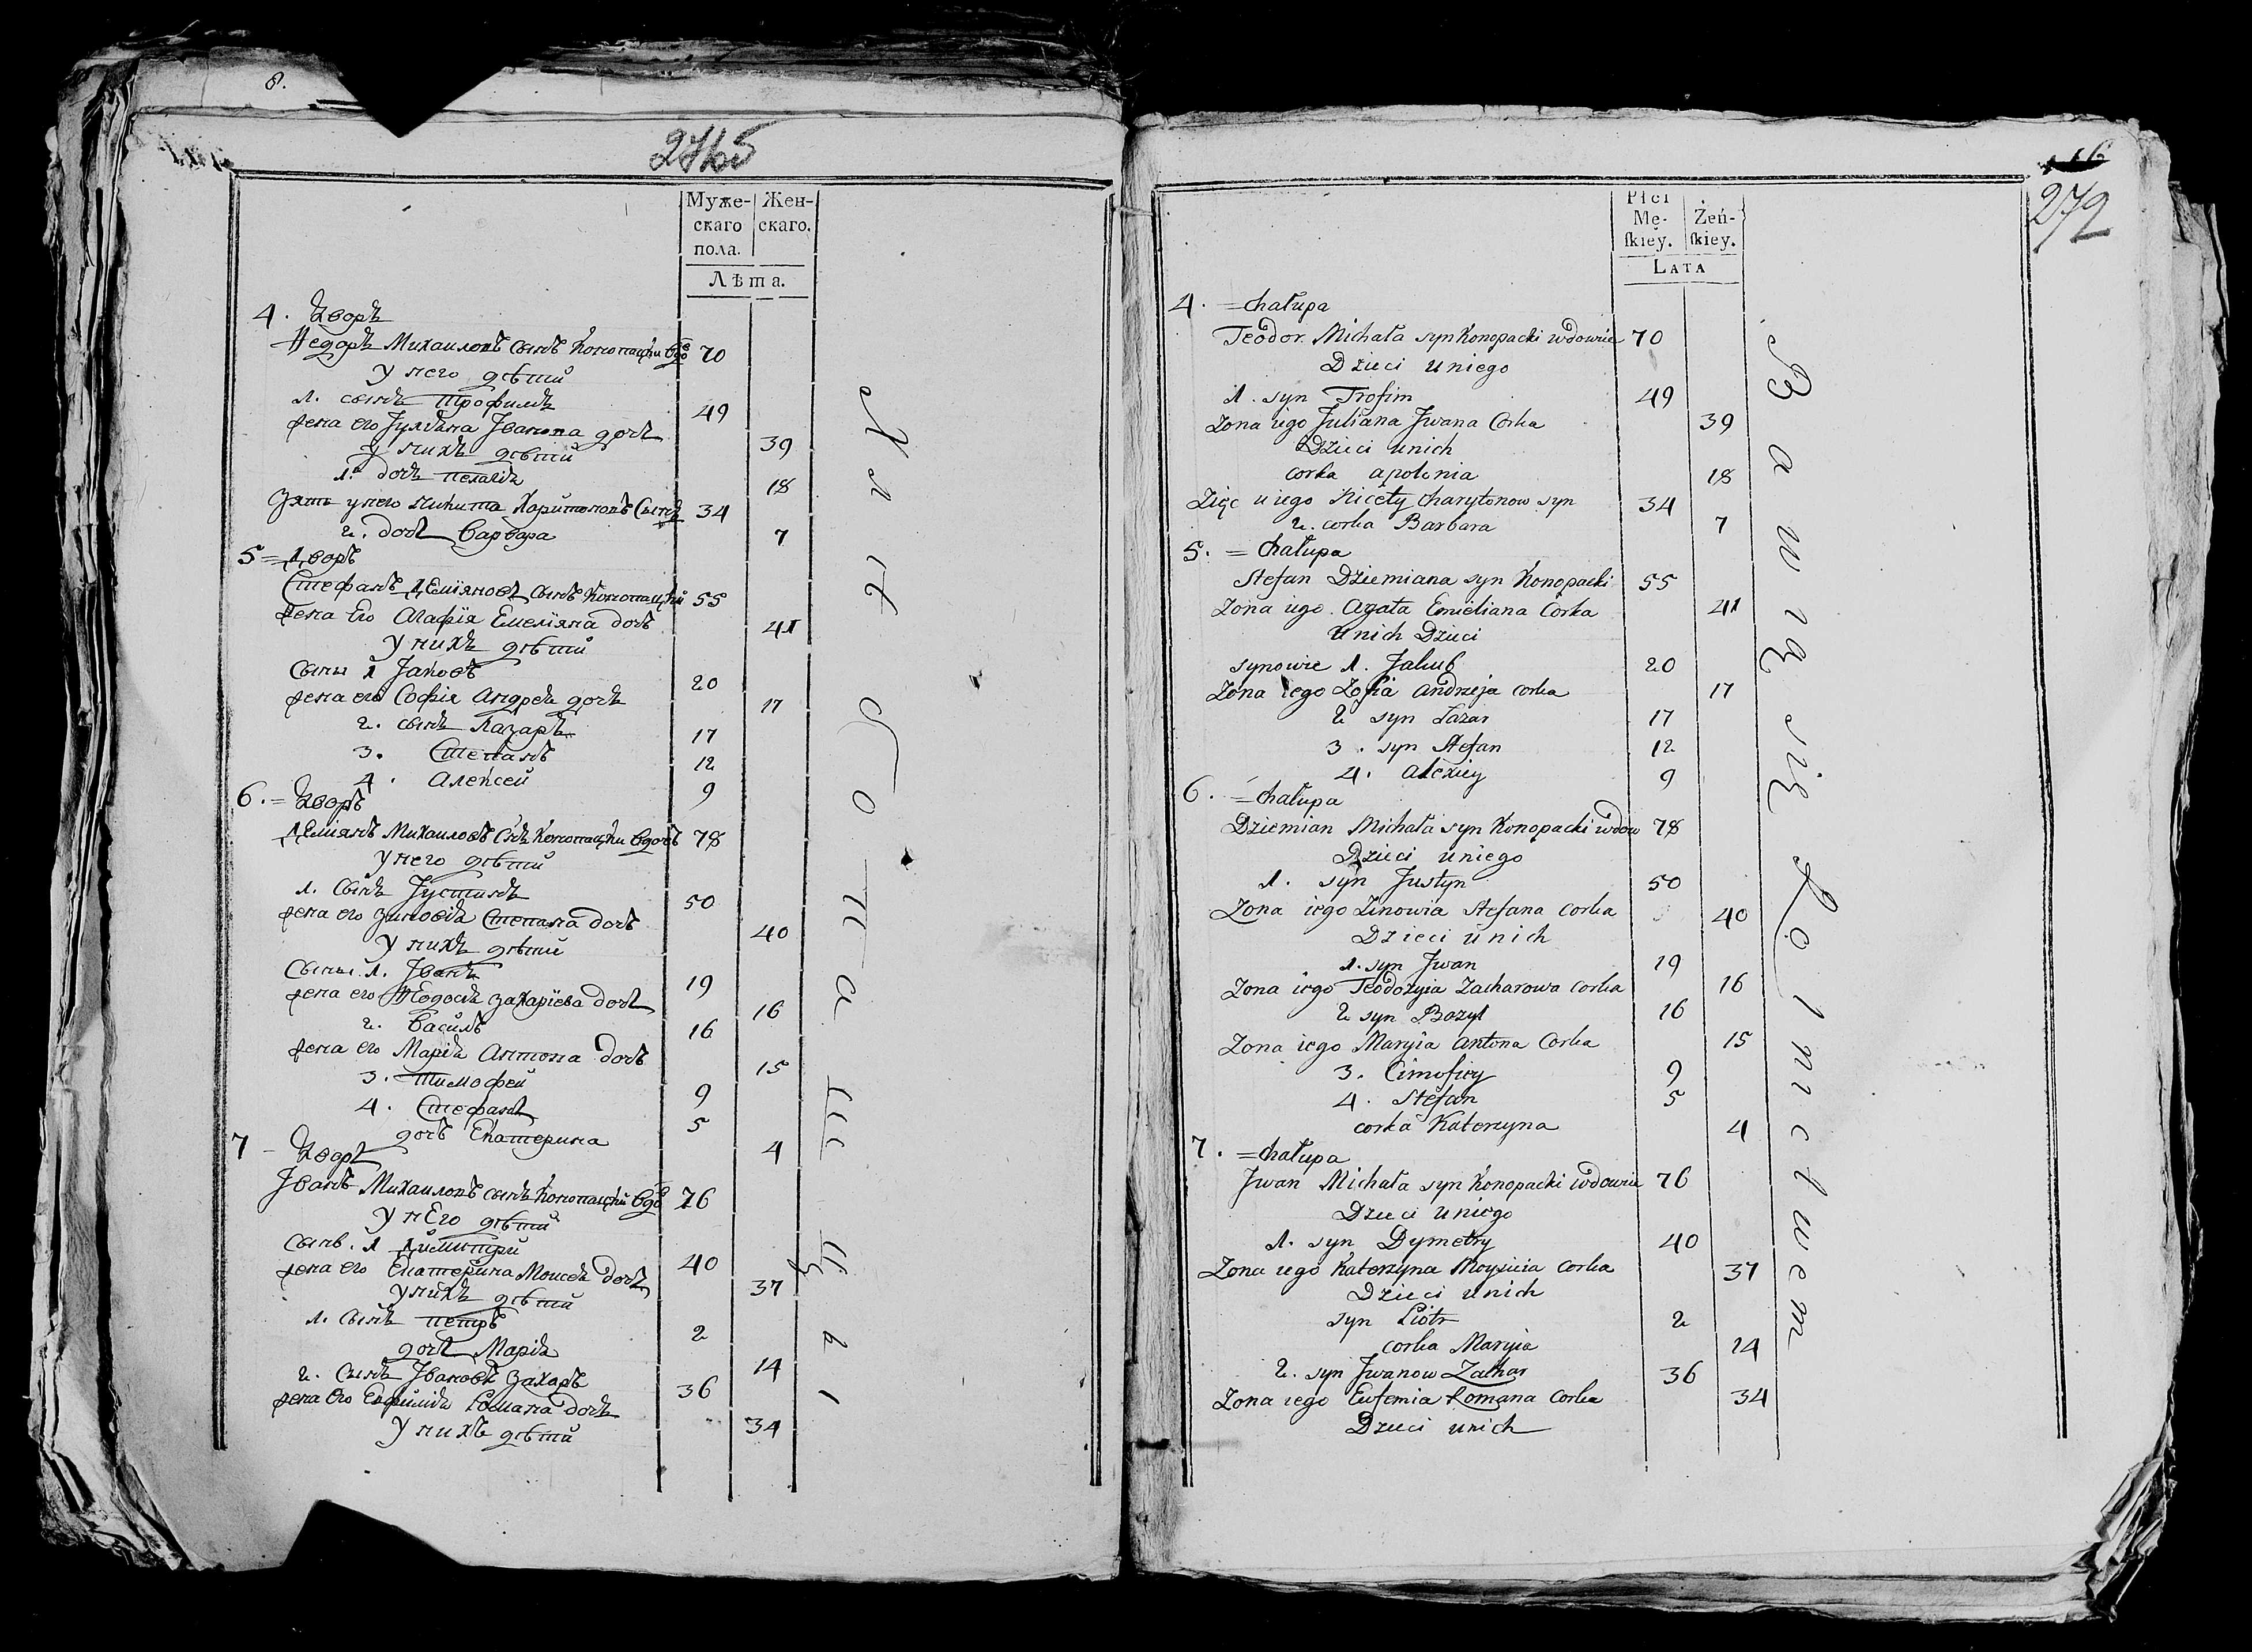 8.
2715
Муже-
скаго
пола.
Жен-
скаго.
Лѣта.
4. Дворъ
Ѳедоръ Михаиловъ сынъ Конопацкии вдо 70
У него дѣти
1. сынъ Трофимъ 49
жена его Іулияна Івана дочь 39
У нихъ дѣти
1. дочь Пелагія 18
Зять у него Никита Харитоновъ Сынъ 34
2. дочь Варвара 7
5 = Дворъ
Стефанъ Деміяновъ сынъ Конопацкий 55
жена Его Агафія Емелїяна дочь 41
У нихъ дѣти
Сыны 1 Іаковъ 20
жена его Софія Андрея дочь 17
2. сынъ Лазаръ 17
3. Степанъ 12
4. Алексей 9
6. = Дворъ
Деміянъ Михаиловъ Снъ Конопацкии вдовъ 78
У него дѣти
1. Сынъ Іустинъ 50
жена его Зиновія Степана дочь 40
У нихъ дѣти
Сыны 1. Іванъ 19
жена его Ѳедосія Захарїева дочь 16
2. Василь 16
жена его Марія Антона дочь 15
3. Тимофеи 9
4. Стефанъ 5
дочь Екатерина 4
7 - Дворъ
Іванъ Михаиловъ сынъ Конопацкий вдо 76
У нЕго дѣти
Сынъ. 1 Димитри 40
жена его Екатерина Моисея дочь 37
У нихъ дѣти
1. Сынъ Петръ 2
дочь Марія 14
2. Сынъ Івановъ Захаръ 36
жена Его Евфимія Романа дочь 34
У нихъ дѣти
16
272
Płci
Mę-
skiey.
Żeń-
skiey.
LATA
4. = chałupa
Teodor Michała syn Konopacki wdowiec 70
Dzieci u niego
1. syn Trofim 49
Zona iego Juliana Jwana Corka 39
Dzieci unich
corka apolonia 18
Zięc u iego Nicety charytonow syn 34
2. corka Barbara 7
5. = chałupa
Stefan Dziemiana syn Konopacki 55
Zona iego. Agata Emieliana Corka 41
unich Dzieci
synowie 1. Jakub 20
Zona iego Zofia andrzeja corka 17
2 syn Łazar 17
3. syn Stefan 12
4. alexiey 9
6. = chałupa
Dziemian Michała syn Konopacki wdow 78
Dzieci uniego
1. syn Justyn 50
Zona iego Zinowia Stefana corka 40
Dzieci unich
1. syn Jwan 19
Zona iego Teodozyia Zacharowa corka 16
2 syn Bazyl 16
Zona iego Maryia antona Corka 15
3. Cimofiey 9
4. Stefan 5
corka Katerzyna 4
7. = chałupa
Jwan Michała syn Konopacki wdowiec 76
Dzieci uniego
1. syn Dymetry 40
Zona iego Katerzyna Moysieia corka 37
Dzieci unich
syn Piotr 2
corka Maryia 14
2. syn Jwanow Zachar 36
Zona iego Eufemia Romana Corka 34
Dzieci unich
Bawią się Rolnictwem